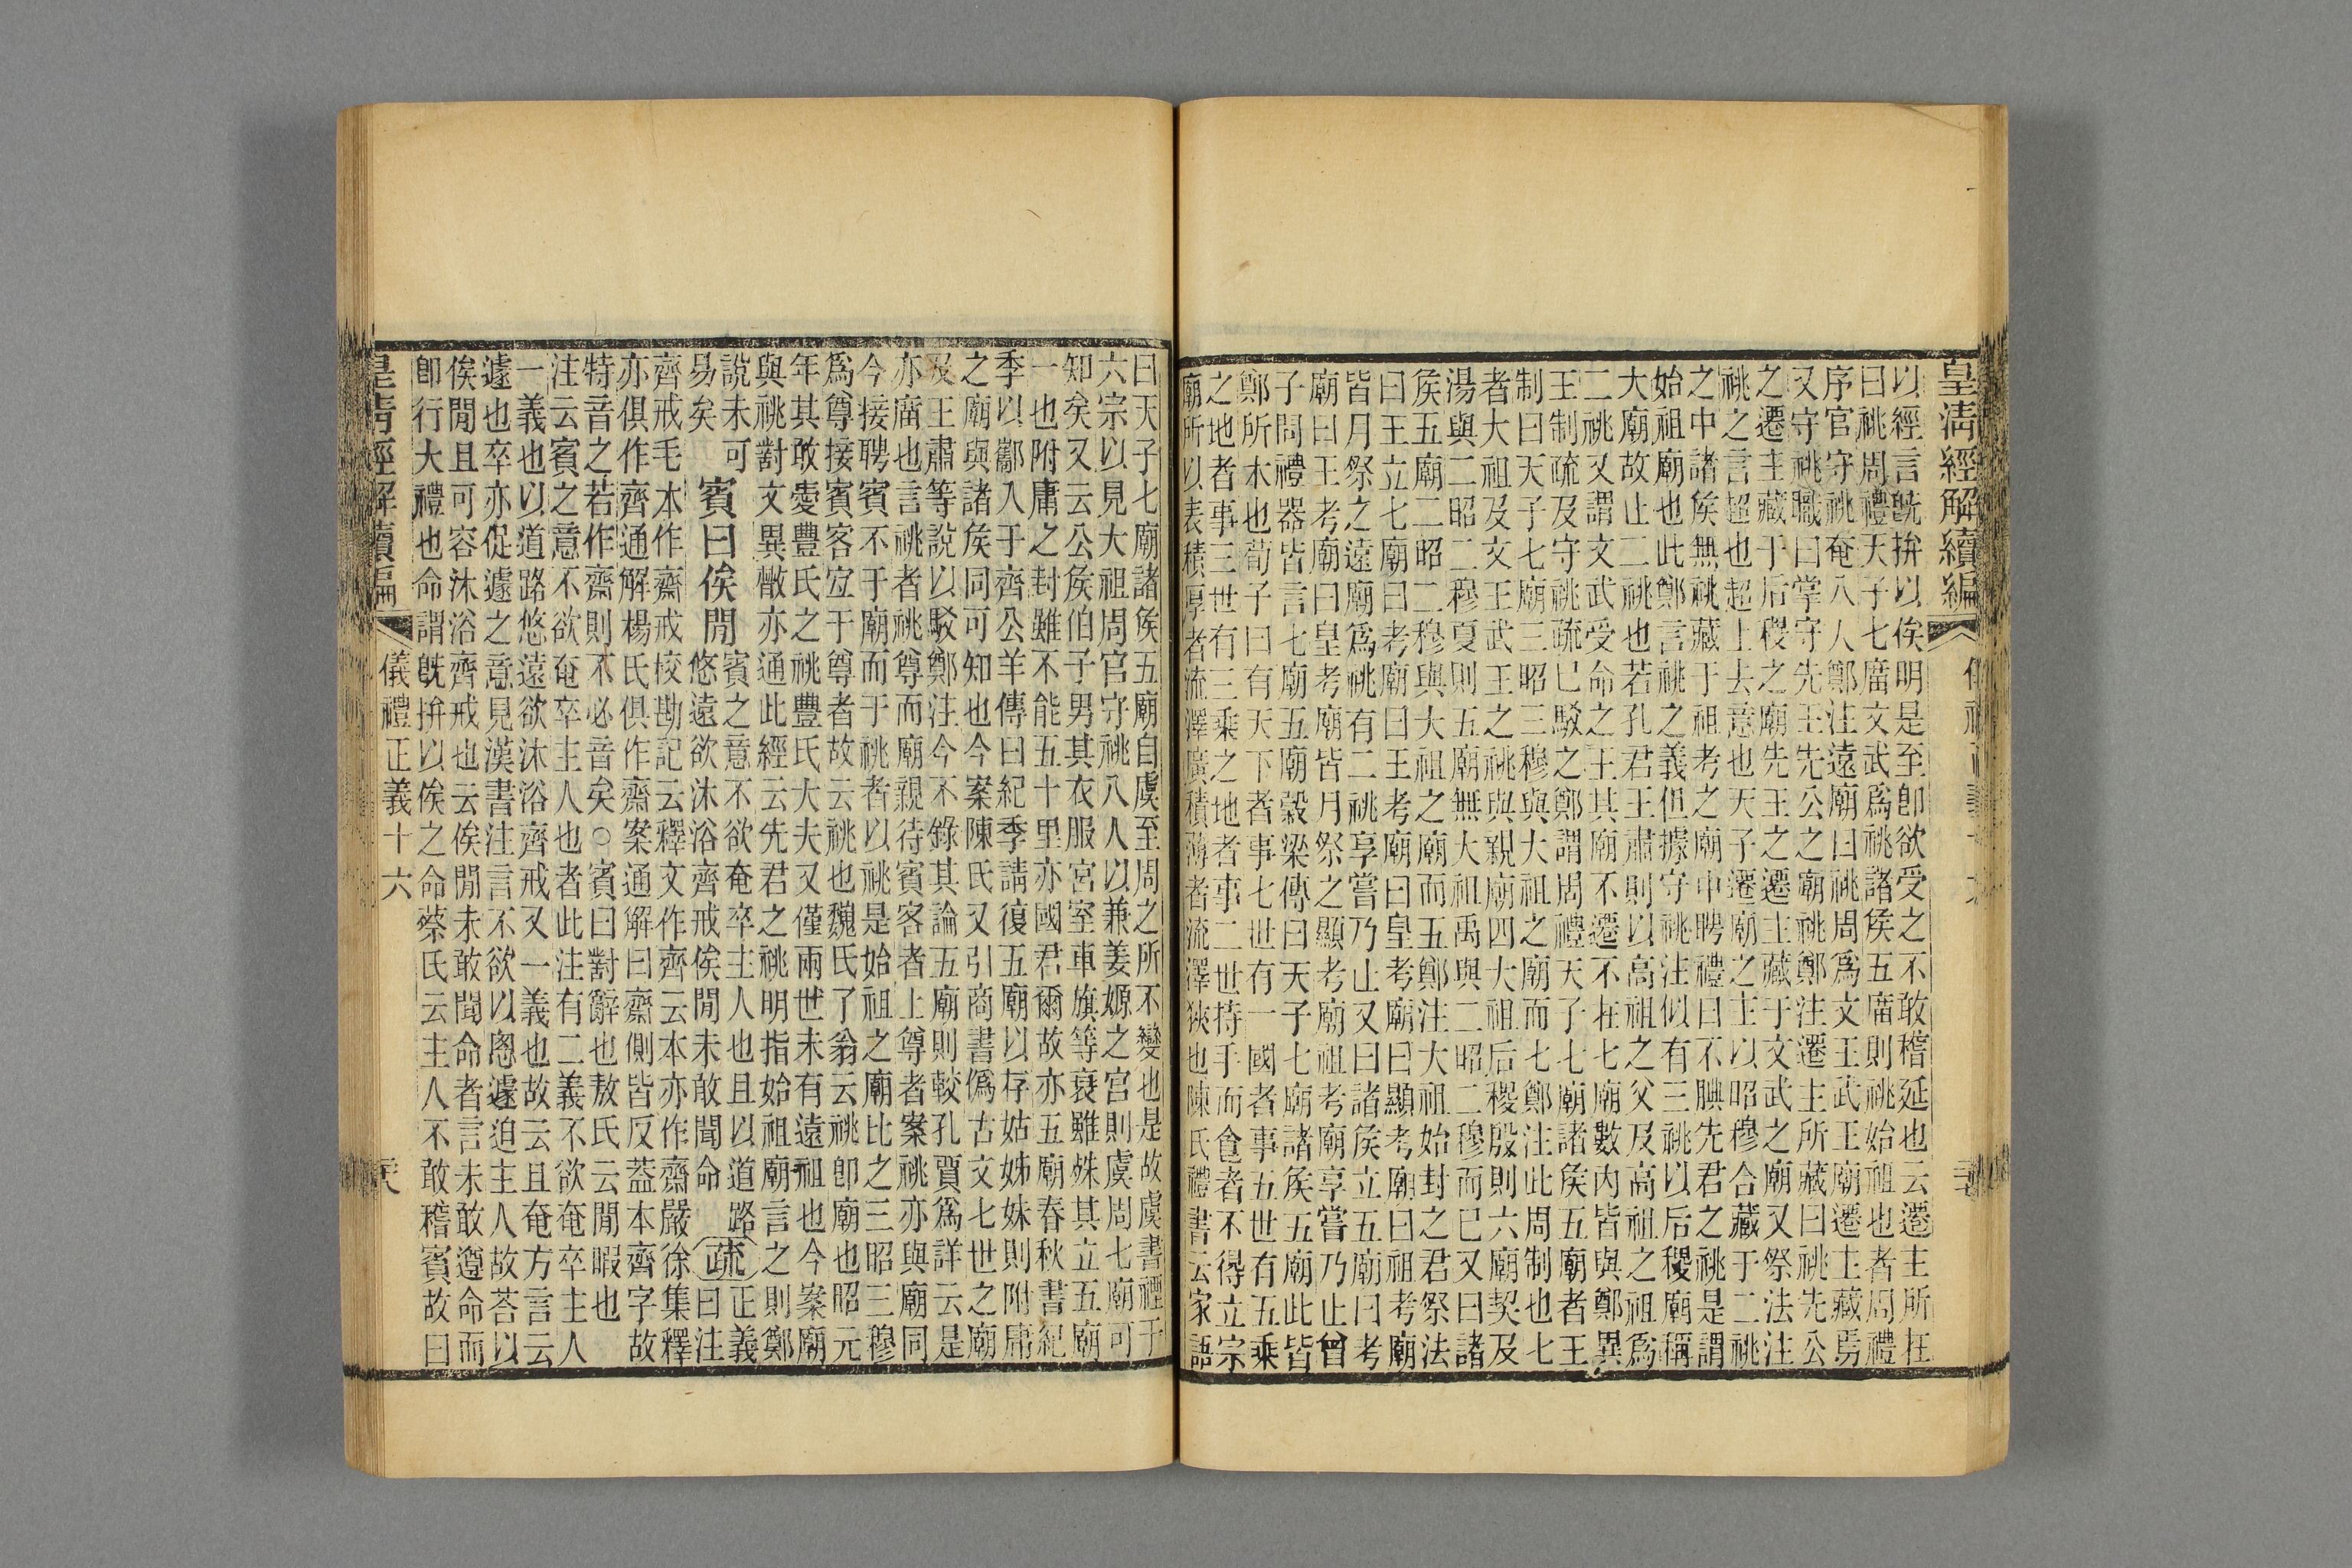 皇清經解續編
以經言旣拚以俟明是至卽欲受之不敢稽延也云遷主所在
曰祧周禮天子七廟文武爲祧諸矦五廟則祧始祖也者周禮
序官守祧奄八人鄭注遠廟曰祧周爲文王武王廟遷主藏焉
又守祧職曰掌守先王先公之廟祧鄭注遷主所藏曰祧先公
之遷主藏于后稷之廟先王之遷主藏于文武之廟又祭法注
祧之言超也超上去意也天子遷廟之主以昭穆合藏于二祧
之中諸矦無祧藏于祖考之廟中聘禮曰不腆先君之祧是謂
始祖廟也此鄭言祧之義但據守祧注似有三祧以后稷廟稱
大廟故止二祧也若孔君王肅則以高祖之父及高祖之祖爲
二祧又謂文武受命之王其廟不遷不在七廟數內皆與鄭異
王制疏及守祧疏已駁之鄭謂周禮天子七廟諸矦五廟者王
制曰天子七廟三昭三穆與大祖之廟而七鄭注此周制也七
者大祖及文王武王之祧與親廟四大祖后稷殷則六廟契及
湯與二昭二穆夏則五廟無大祖禹與二昭二穆而已又曰諸
矦五廟二昭二穆與大祖之廟而五鄭注大祖始封之君祭法
曰王立七廟曰考廟曰王考廟曰皇考廟曰顯考廟曰祖考廟
皆月祭之遠廟爲祧有二祧享嘗乃止又曰諸矦立五廟曰考
廟曰王考廟曰皇考廟皆月祭之顯考廟祖考廟享嘗乃止曾
子問禮器皆言七廟五廟穀梁傳曰天子七廟諸矦五廟此皆
鄭所本也荀子曰有天下者事七世有一國者事五世有五乘
之地者事三世有三乘之地者事二世持手而食者不得立宗
廟所以表積厚者流澤廣積薄者流澤狹也陳氏禮書云家語
曰天子七廟諸矦五廟自虞至周之所不變也是故虞書禋于
六宗以見大祖周官守祧八人以兼姜嫄之宮則虞周七廟可
知矣又云公矦伯子男其衣服宮室車旗等衰雖殊其立五廟
一也附庸之封雖不能五十里亦國君爾故亦五廟春秋書紀
季以酅入于齊公羊傳曰紀季請復五廟以存姑姊妹則附庸
之廟與諸矦同可知也今案陳氏又引商書僞古文七世之廟
及王肅等說以駁鄭注今不錄其論五廟則較孔賈爲詳云是
亦廟也言祧者祧尊而廟親待賓客者上尊者案祧亦與廟同
今接聘賓不于廟而于祧者以祧是始祖之廟比之三昭三穆
爲尊接賓客宜于尊者故云祧也魏氏了翁云祧卽廟也昭元
年其敢愛豐氏之祧豐氏大夫又僅兩世未有遠祖也今案廟
與祧對文異散亦通此經云先君之祧明指始祖廟言之則鄭
說未可
易矣
賓曰俟閒
賓之意不欲奄卒主人也且以道路
悠遠欲沐浴齊戒俟閒未敢聞命
疏
正義
曰注
齊戒毛本作齋戒校勘記云釋文作齊云本亦作齋嚴徐集釋
亦俱作齊通解楊氏俱作齋案通解曰齋側皆反葢本齊字故
特音之若作齋則不必音矣○賓曰對辭也敖氏云閒暇也
注云賓之意不欲奄卒主人也者此注有二義不欲奄卒主人
一義也以道路悠遠欲沐浴齊戒又一義也故云且奄方言云
遽也卒亦促遽之意見漢書注言不欲以悤遽迫主人故荅以
俟閒且可容沐浴齊戒也云俟閒未敢聞命者言未敢遵命而
卽行大禮也命謂旣拚以俟之命蔡氏云主人不敢稽賓故曰
皇清經解續編 儀禮正義十六